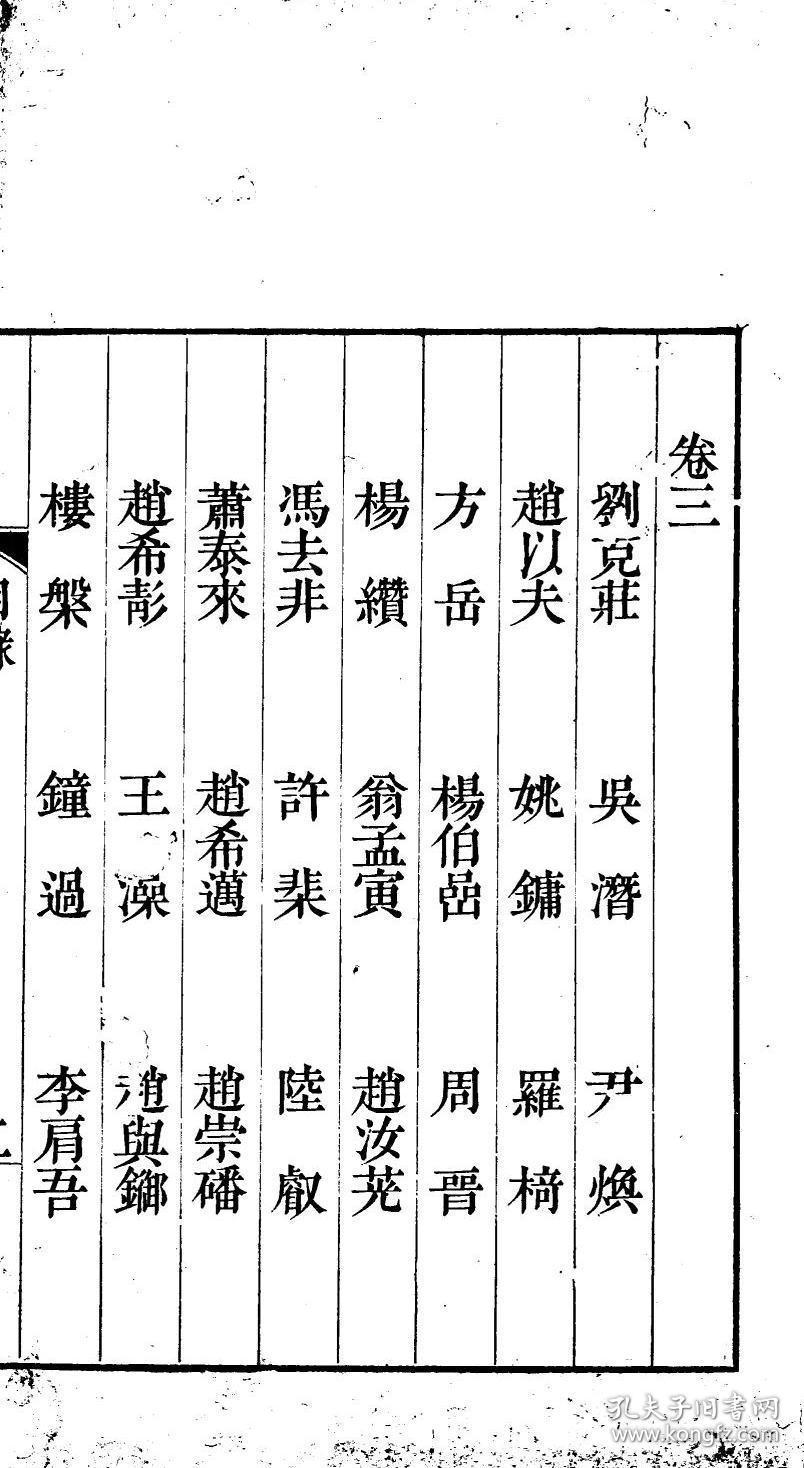 卷三
劉克莊 吳潛 尹煥
趙以夫 姚鏞 羅椅
方岳 楊伯嵒 周晉
楊纘 翁孟寅 趙汝茪
馮去非 許棐 陸叡
蕭泰來 趙希邁 趙崇磻
趙希彭 王澡 趙與鎯
樓槃 鐘過 李肩吾
目錄
孔夫子旧书网
www.kongfz.com